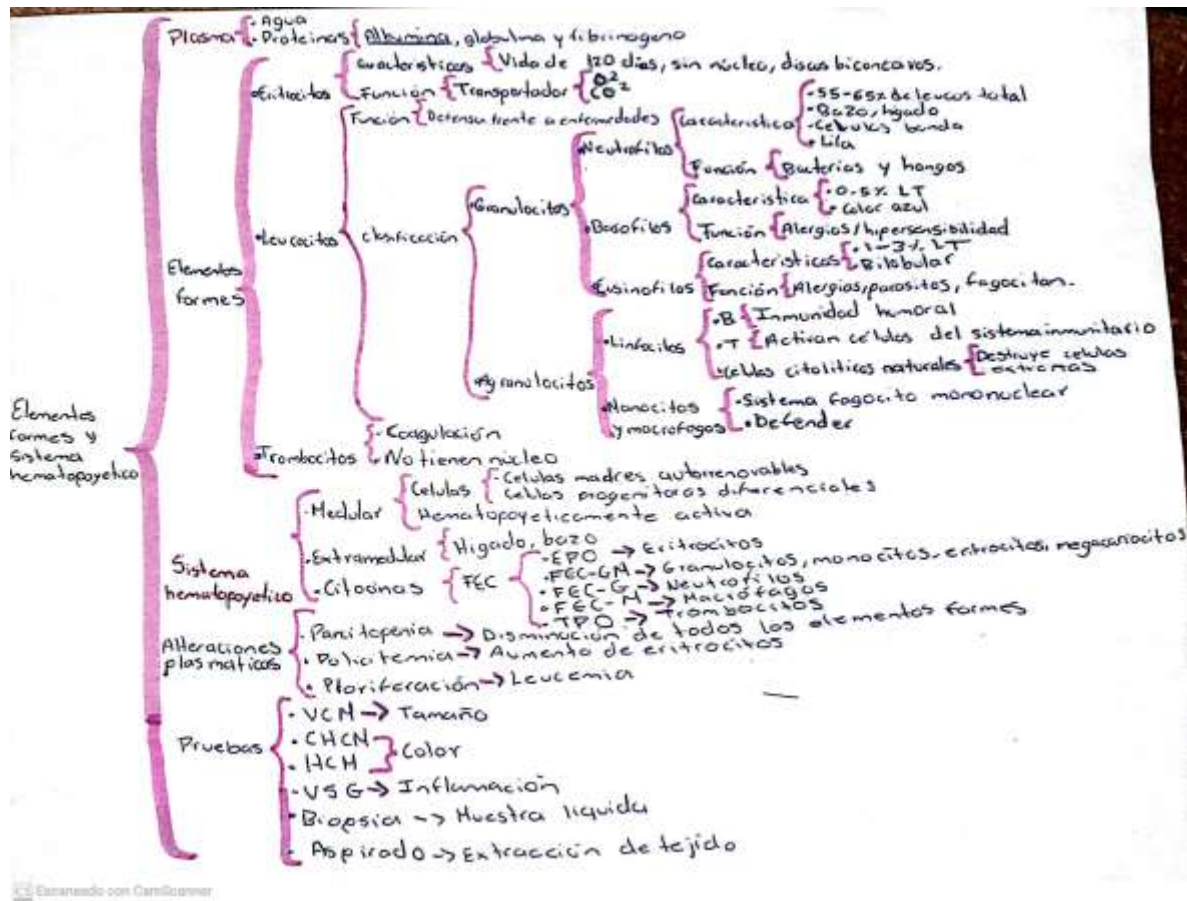 Elementos formes y sistema hematopoyetico
Plasma
- Agua
- Proteinas
Albumina, globulina y fibrinogeno
Elementos formes
• Eritrocitos
Caracteristicas
Vida de 120 dias, sin núcleo, discos biconcavos.
Función
Transportador
O²
CO²
• Leucocitos
Función
Defensa frente a enfermedades
clasificación
• Granulocitos
• Neutrofilos
Caracteristica
- 55-65% de leucos total
- Bazo, hígado
- Celulas banda
• Lila
Función
Bacterias y hongos
• Basofilos
Caracteristica
• 0.5% LT
• Color azul
Función
Alergias/hipersensibilidad
Eusinofilos
Caracteristicas
• 1-3% LT
Bilobular
Función
Alergias, parasitos, fagocitan.
• Agranulocitos
• Linfocitos
• B
Inmunidad humoral
• T
Activan células del sistema inmunitario
• Celulas citoliticas naturales
Destruye celulas
• Monocitos y macrofagos
- Sistema fagocito mononuclear
• Defender
• Trombocitos
- Coagulación
- No tienen núcleo
Sistema hematopoyetico
• Medular
Celulas
- Celulas madres autorrenovables
Celulas progenitoras diferenciales
Hematopoyeticamente activa
• Extramedular
Higado, bazo
• Citocinas
FEC
- EPO → Eritrocitos
• FEC-GM → Granulocitos, monocitos, eritrocitos, megacariocitos
• FEC-G → Neutrofilos
• FEC-M → Macrófagos
• TPO → Trombocitos
Alteraciones plasmaticas
• Pancitopenia → Disminución de todos los elementos formes
• Policitemia → Aumento de eritrocitos
• Ploriferación → Leucemia
Pruebas
• VCM → Tamaño
• CHCM
• HCM
Color
• VSG → Inflamación
• Biopsia → Muestra liquida
• Aspirado → Extracción de tejido
CS Escaneado con CamScanner